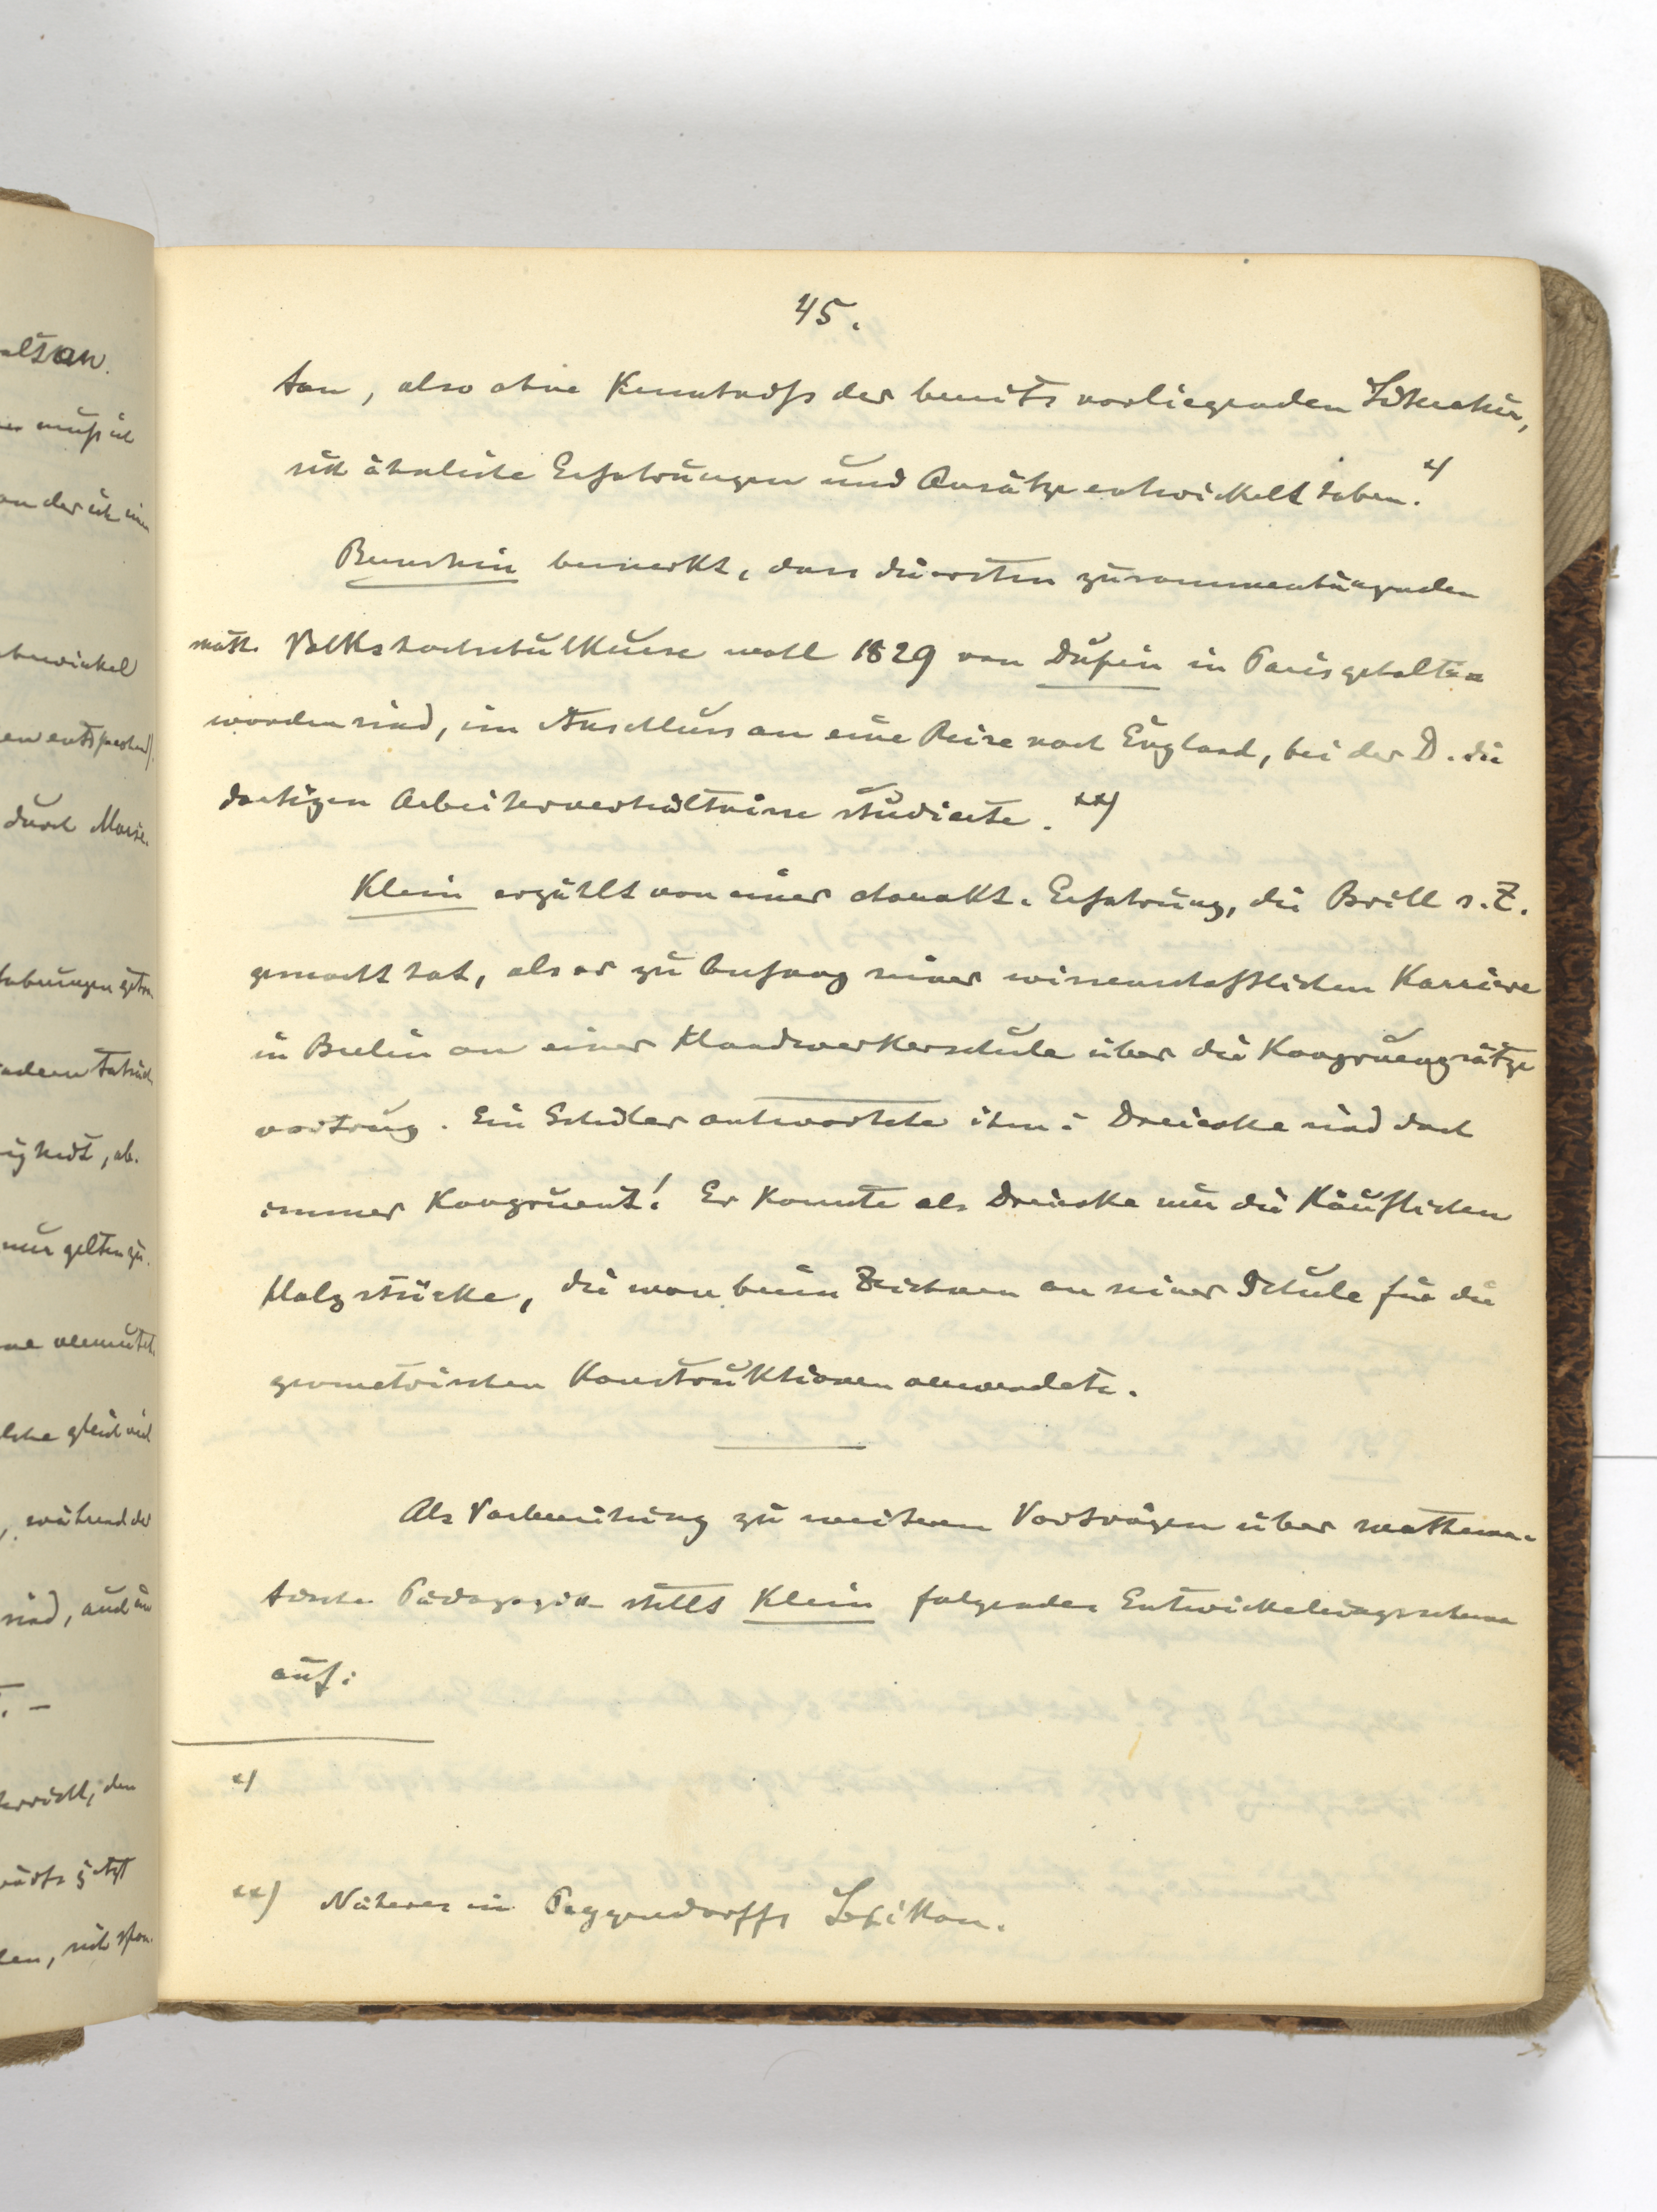 45.
tan, also ohne Kenntniss der bereits vorliegenden Literatur,
sich ähnliche Erfahrungen und Ansätze entwickelt haben. *)
Bernstein bemerkt, dass die ersten zusammenhängenden
math. Volkshochschulkurse wohl 1829 von Dupin in Paris gehalten
worden sind, im Anschluss an eine Reise nach England, bei der D. die
dortigen Arbeiterverhältnisse studierte. **)
Klein erzählt von einer charakt. Erfahrung, die Brill s. Z.
gemacht hat, als er zu Anfang seiner wissenschaftlichen Karriere
in Berlin an einer Handwerkerschule über die Kongruenzsätze
vortrug. Ein Schüler antwortete ihm: Dreiecke sind doch
immer kongruent! Er kannte als Dreiecke nur die käuflichen
Holzstücke, die man beim Zeichnen an seiner Schule für die
geometrischen Konstruktionen verwendete.
Als Vorbereitung zu weiteren Vorträgen über mathema-
tische Pädagogik stellt Klein folgendes Entwickelungsschema
auf:
*)
**) Näheres in Poggendorffs Lexikon.
altson.
muss ich
an der ich
entsprechend).
durch
nur gelten
gleich
, während der
sind, auch
jetzt